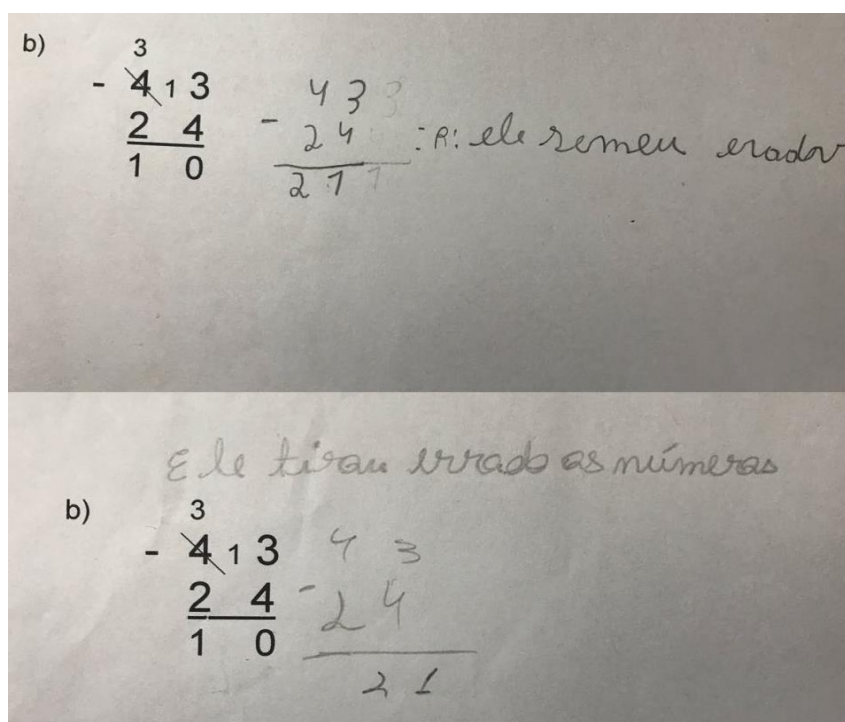 b)
3
- 4 1 3
2 4
1 0
4 3
- 2 4
2 1
:R: ele semeu erado
Ele tirau errado os números
b)
3
- 4 1 3
2 4
1 0
4 3
- 2 4
2 1